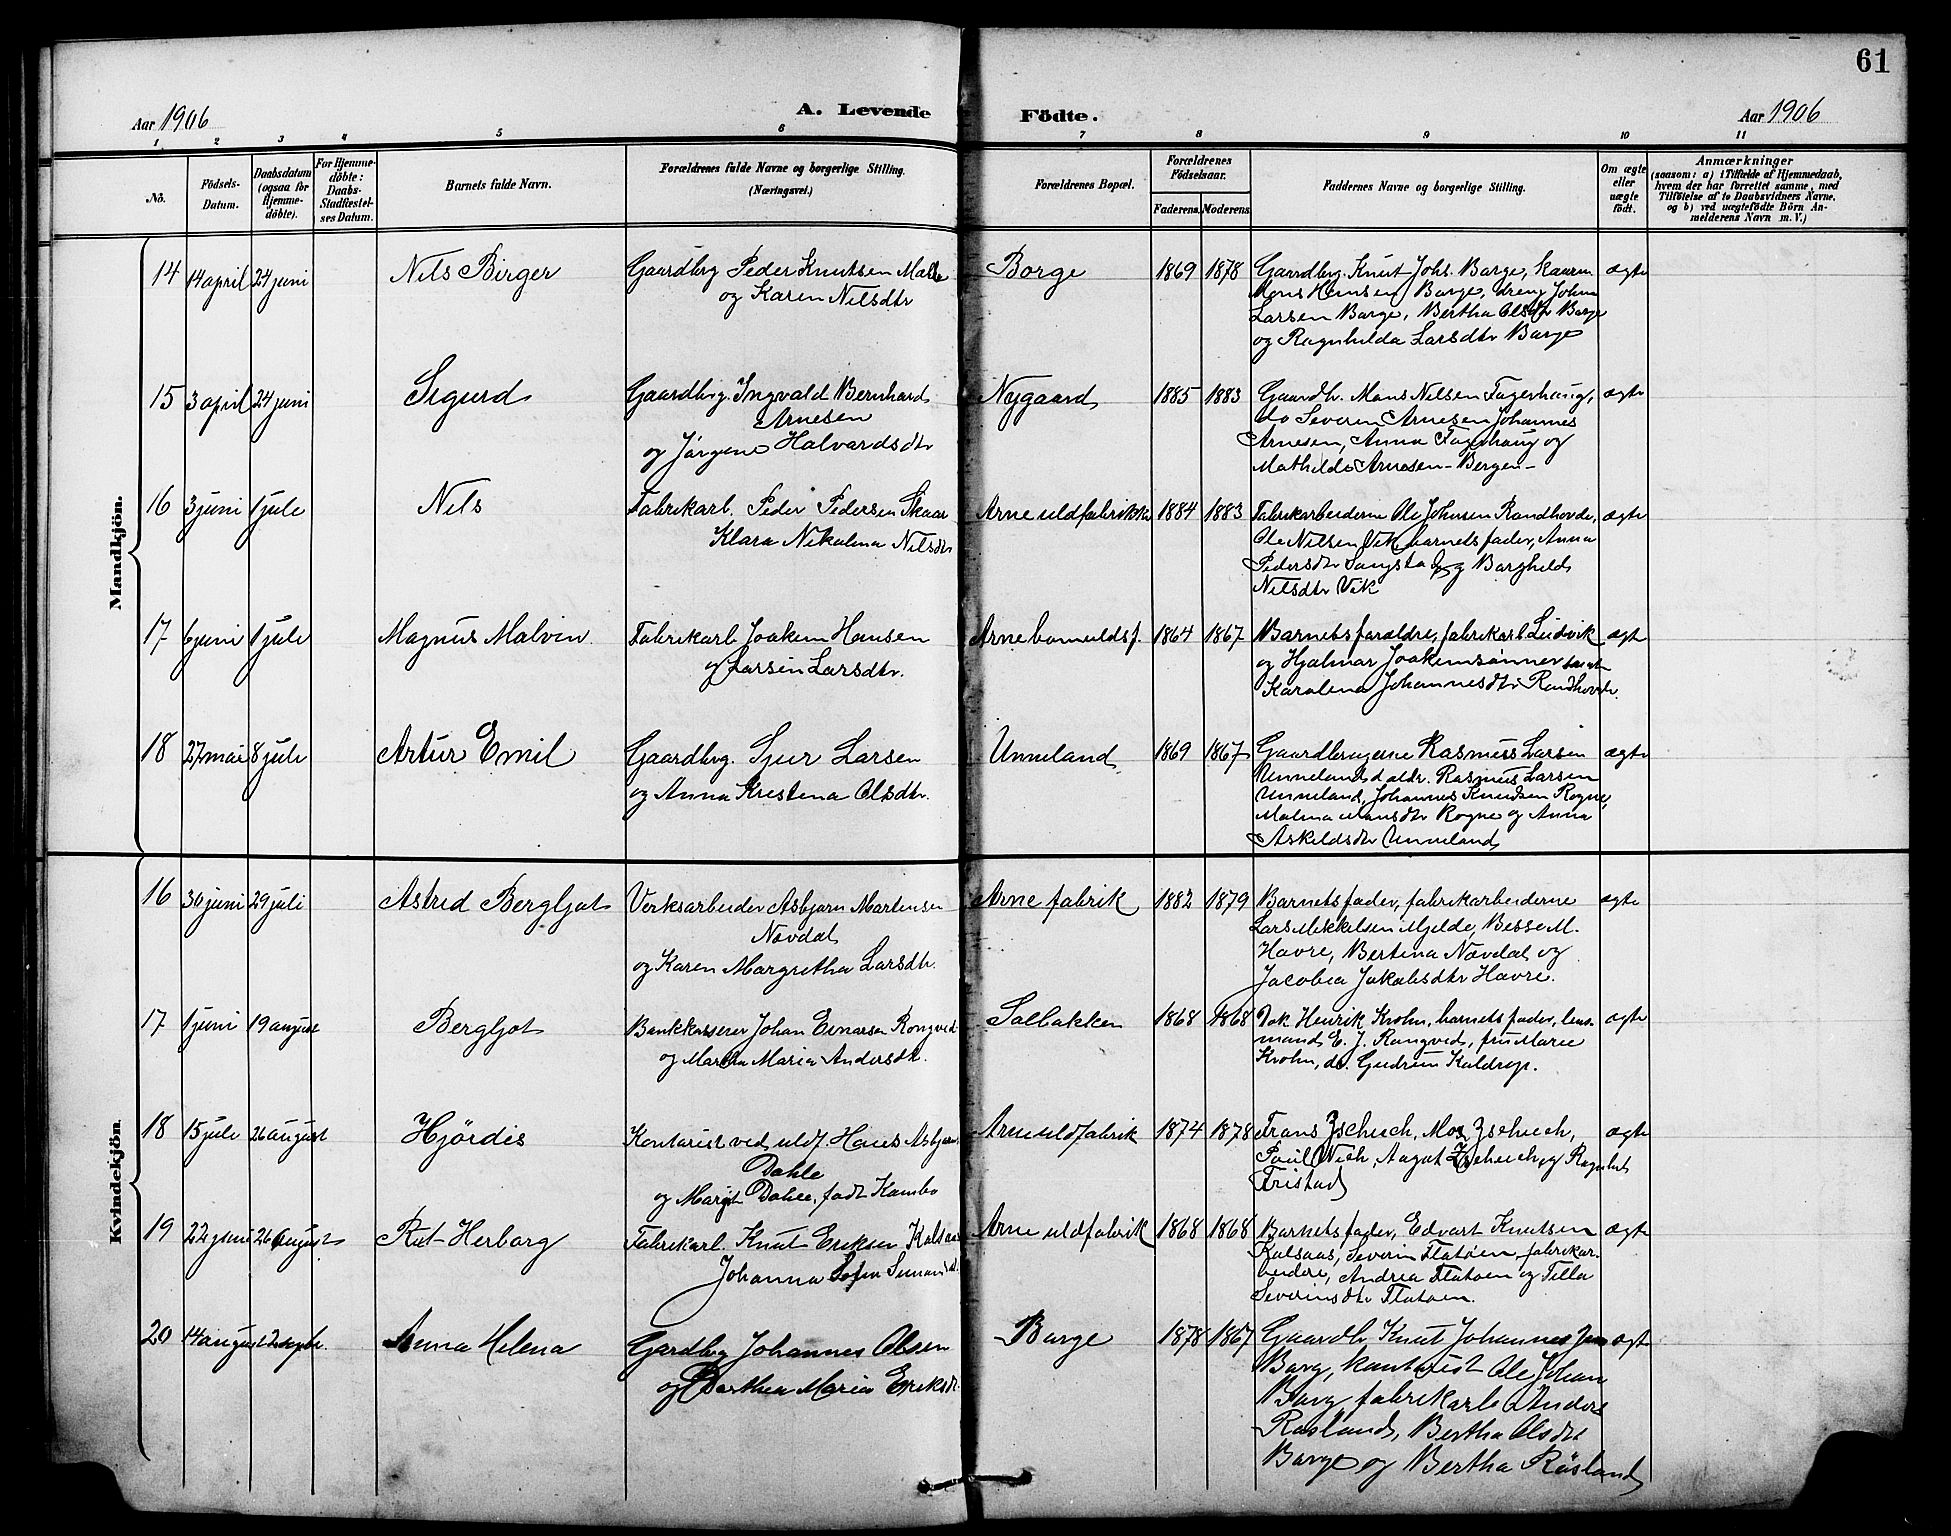 61
Aar 1906 A. Levende Födte. Aar 1906
1 2 3 4 5 6 7 8 9 10 11
No. Födsels-Datum. Daabsdatum (ogsaa for Hjemmedöbte). For Hjemmedöbte: Daabs-Stadfæstelses Datum. Barnets fulde Navn. Forældrenes fulde Navne og borgerlige Stilling. (Næringsvei.) Forældrenes Bopæl. Forældrenes Födselsaar. Faderens Moderens Faddernes Navne og borgerlige Stilling. Om ægte eller uægte födt. Anmærkninger
(saasom: a) i Tilfælde af Hjemmedaab,
hvem der har forrettet samme, med
Tilföielse af to Daabsvidners Navne,
og b) ved uægtefödte Börn Anmelderens Navn m. V.)
Mandkjön.
14 14 april 24 juni Nils Birger Gaardbrg Peder Knutsen Borge 1869 1878 Gaardbrg. Knut Johs. Borge, ægte
og Karen Nilsdtr
Mons Hansen Borge, dreng Johan
Larsen Borge, Bertha Olsdtr Borge
og Ragnhilda Larsdtr Borge
15 3 april 24 juni Sigurd Gaardbrg. Ingvald Bernhard Nygaard 1885 1883 Gaardbr. Mons Nilsen Fagerhaug, ægte
Arnesen
og Jørgine Halvardsdtr
do Severin Arnesen Johannes
Arnesen, Anna Fagerhaug og
Mathilde Arnesen - Bergen -
16 3 juni 1 juli Nils Fabrikarb. Peder Pedersen Skaar Arne uldfabrikk 1884 1883 Fabrikarbeiderne Ole Johnsen Randhovde, ægte
Klara Nikolina Nilsdtr
Ole Nilsen Vik, barnets fader, Anna
Pedersdtr og Borghild
Nilsdtr Vik
17 6 juni 1 juli Magnus Malvin Fabrikarb Joakim Hansen Arne bomuldsf. 1864 1867 Barnets forældre, fabrikarb Ludvik ægte
og Larsin Larsdtr.
og Hjalmar Joakimsønner samt
Karolina Johannesdtr Randhovde.
18 27 mai 8 juli Artur Emil Gaardbrg. Sjur Larsen Unneland 1869 1867 Gaardbrugerne Rasmus Larsen ægte
og Anna Kristina Olsdtr.
Unneland d. ældr. Rasmus Larsen
Unneland, Johannes Knudsen Rogne,
Malina Monsdtr Rogne og Anna
Askildsdtr Unneland
Kvindekjön.
16 30 juni 29 juli Astrid Bergljot Verksarbeider Asbjørn Martinsen Arne fabrik 1882 1879 Barnets fader, fabrikarbeiderne ægte
Novdal
og Karen Margretha Larsdtr.
Lars Mikkelsen Mjelde, Besse M.
Havre, Bertina Novdal og
Jacobia Jakobsdtr Havre.
17 1 juni 19 august Bergljot Bankkasserer Johan Einarsen Rongved Solbakken 1868 1868 Dok Henrik Krohn, barnets fader, lens- ægte
og Martha Maria Andersdtr.
mand E. J. Rongved, fru Marie
Krohn, do. Gudrun Koldrup.
18 15 juli 26 august Hjördis Kontorist ved uldf. Hans Asbjørn Arne uldfabrik 1874 1878 Frans Zschech, Max Zschech, ægte
Dahle
og Margit Dahle, født Kambo
Paul Wich, Aagot Zschech og Ragnhild
Fristad
19 22 juni 26 august Rut Herborg Fabrikarb. Knut Eriksen Kalsaas Arne uldfabrik 1868 1868 Barnets fader, Edvart Knutsen ægte
Johanna Sofia
Kalsaas, Severin Flatøen, fabrikar-
beidere, Andrea Flatøen og Tilla
Severinsdtr Flatøen.
20 14 august 2 septbr. Anna Helena Gardbrg Johannes Olsen Borge 1878 1867 Gaardbr Knut Johannesen ægte
og Dorthea Maria Eriksdtr.
Borg, kontorist Ole Johan
Borg, fabrikarb Anders
Røsland, Bertha Olsdtr
Borge og Bertha Røsland